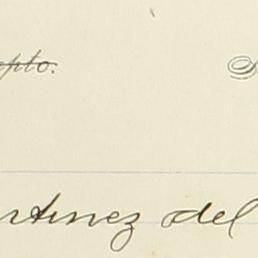 pto.
rtinez del